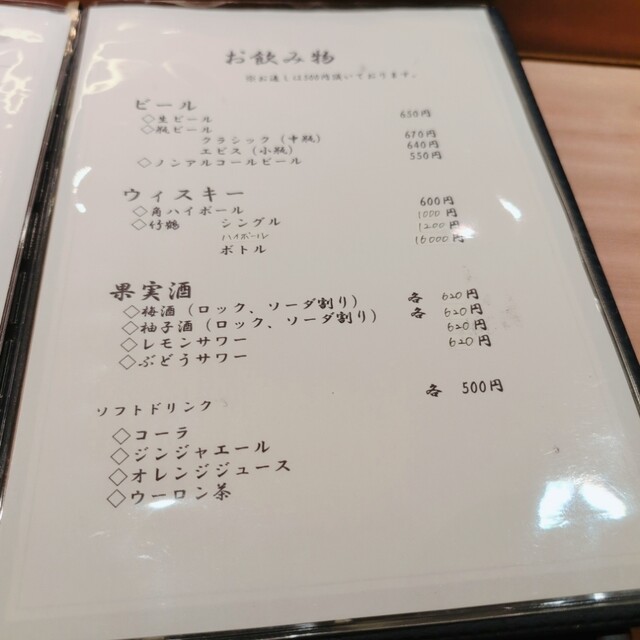 お飲み物
※お通しは500円頂いております。
ビール
◇生ビール 650円
◇瓶ビール
クラシック（中瓶） 670円
エビス（小瓶） 640円
◇ノンアルコールビール 550円
ウィスキー
◇角ハイボール 600円
◇竹鶴 シングル 1000円
ハイボール 1200円
ボトル 16000円
果実酒
◇梅酒（ロック、ソーダ割り） 各 620円
◇柚子酒（ロック、ソーダ割り） 各 620円
◇レモンサワー 620円
◇ぶどうサワー 620円
ソフトドリンク 各 500円
◇コーラ
◇ジンジャエール
◇オレンジジュース
◇ウーロン茶